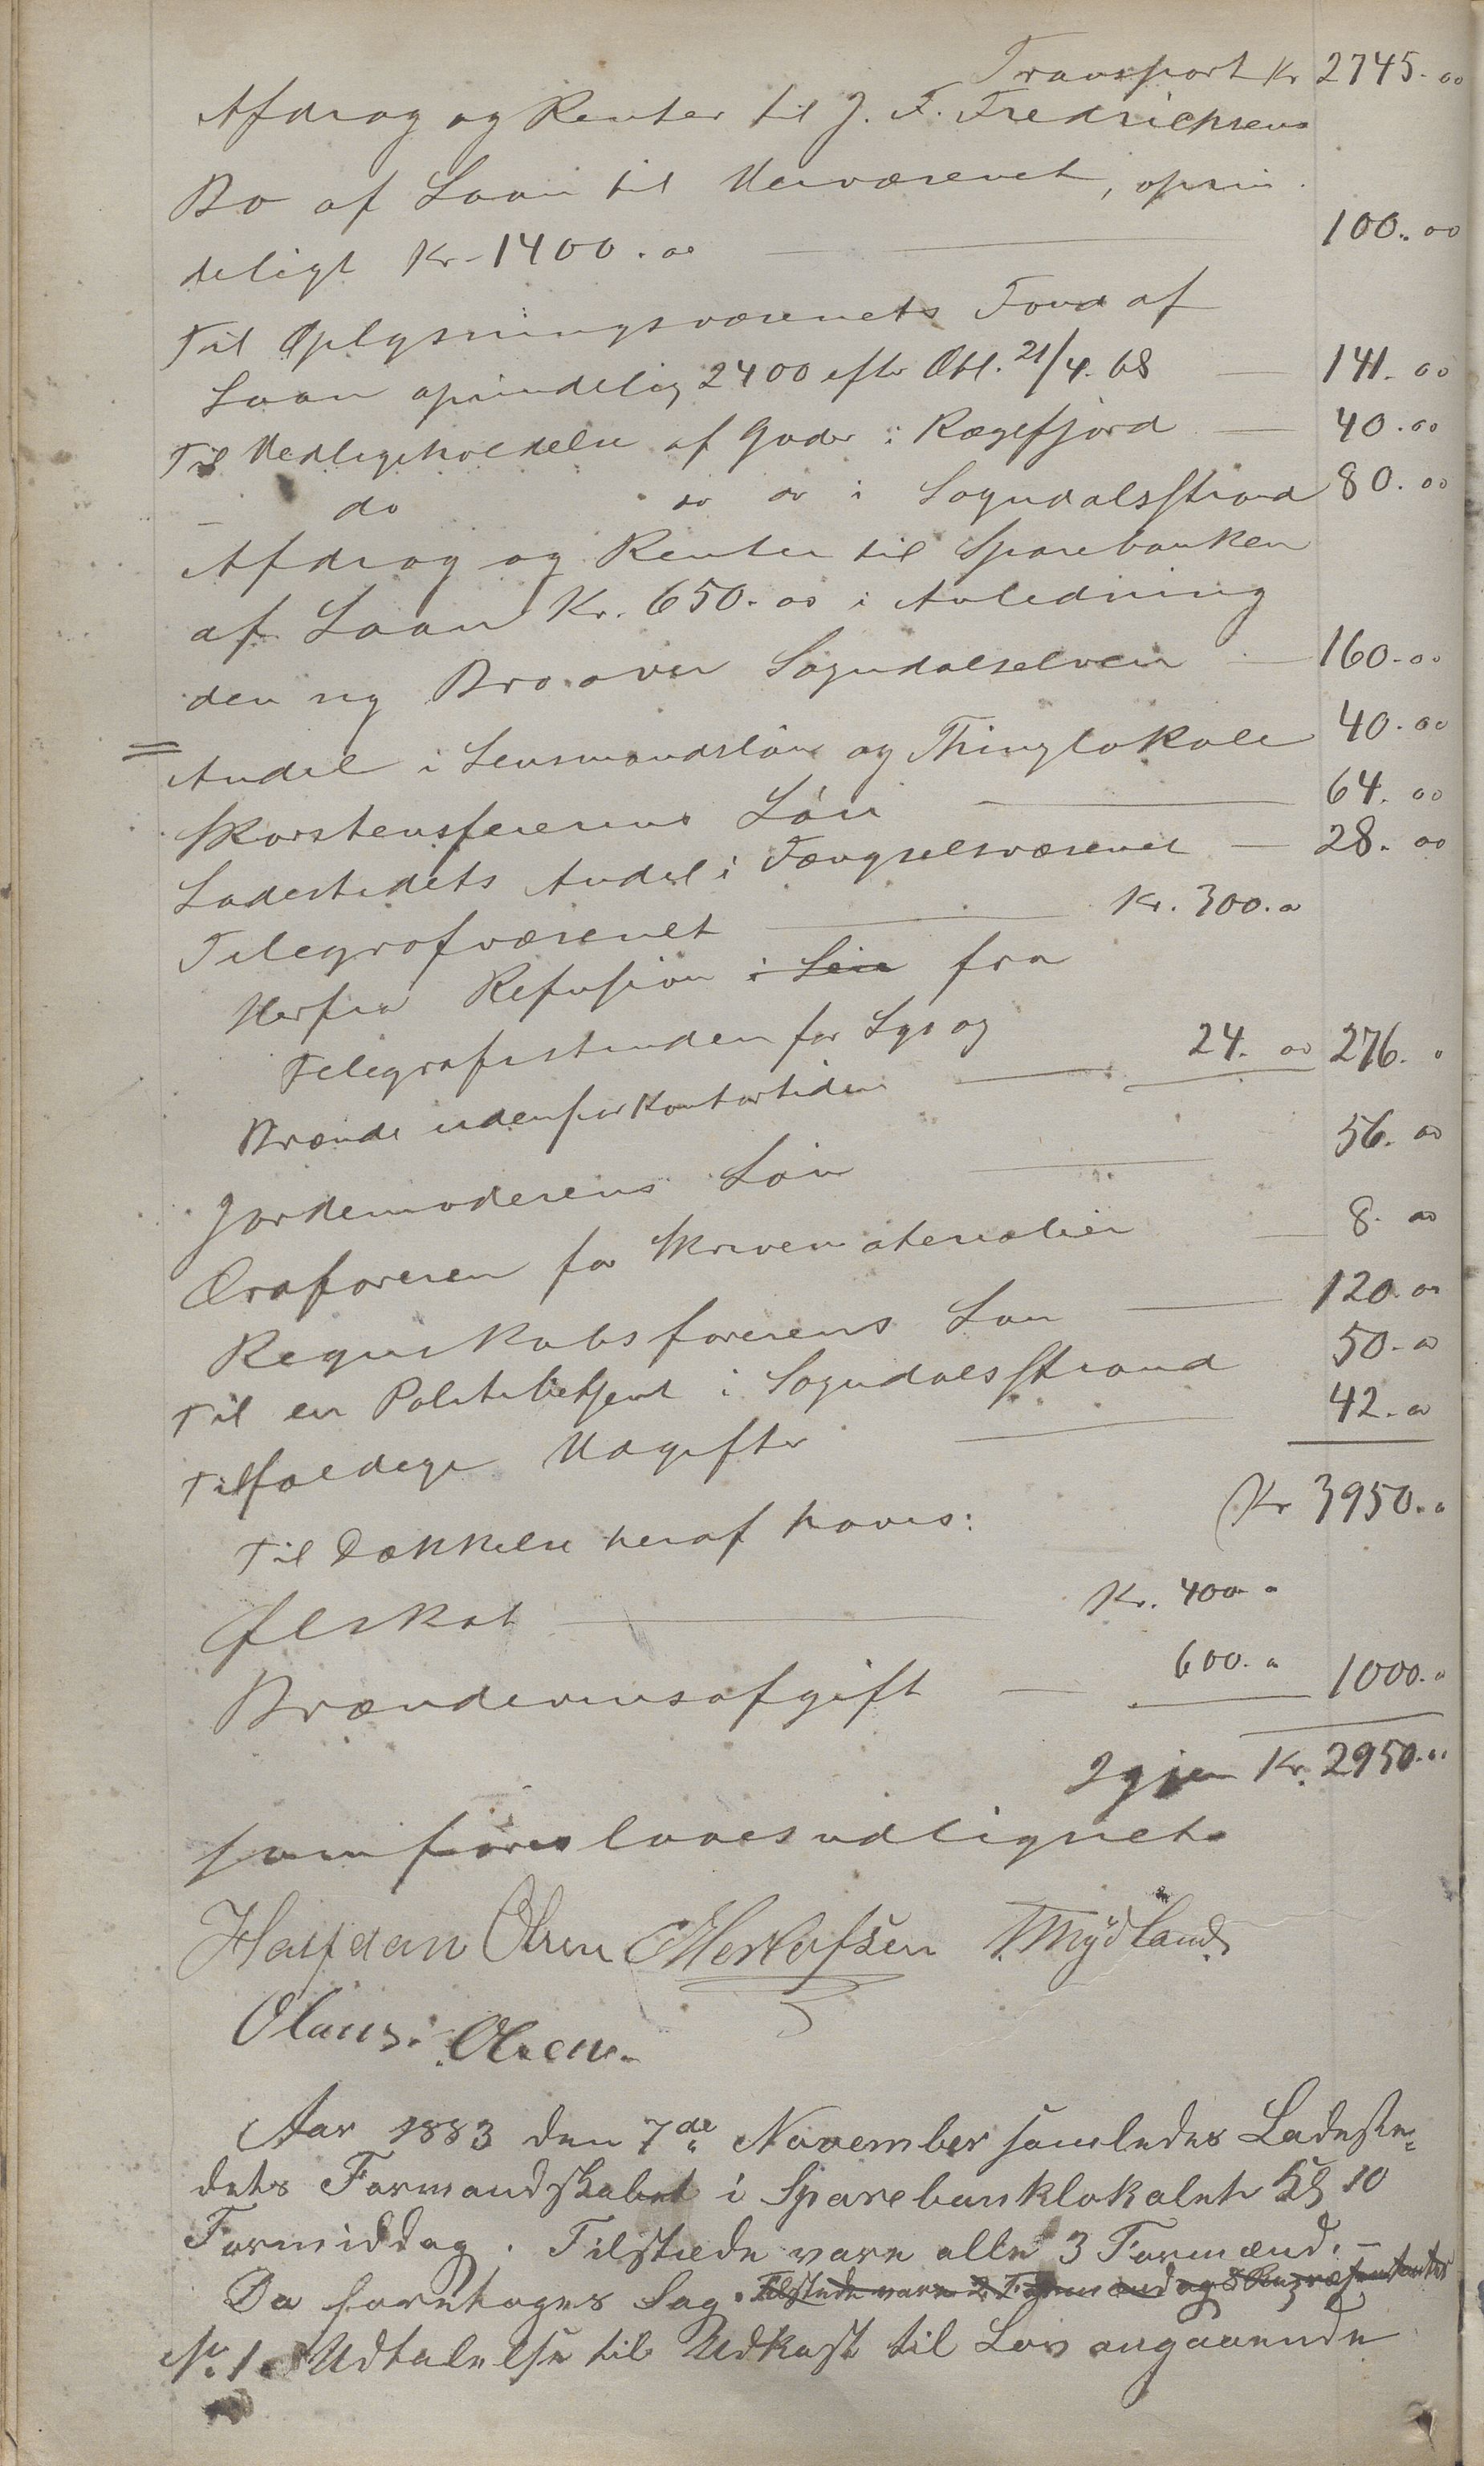 Transport Kr 2745.00
Afdrag og Renter til J. F. Fredrichsens
Bo af Laan til Havnevæsenet, oprin
deligt Kr. 1400.00 — 100.00
Til Oplysningsvæsenets Fond af
Laan oprindelig 2400 efter Obl. 21/4.68 — 141.00
Til Vedligeholdelse af Gader i Rægefjord — 40.00
— do do do i Sogndalsstrand 80.00
Afdrag og Renter til Sparebanken
af Laan Kr. 650.00 i Anledning
den ny Bro over Sogndalselven — 160.00
Andel i Lensmandsløn og Thinglokale 40.00
Skorstensfeierens Løn — 64.00
Ladestedets Andel i Fængselsvæsenet — 28.00
Telegrafvæsenet — Kr. 300.00
Herfra Refusion i Løn fra
Telegrafistinden for Lys og
Brænde udenfor Kontortiden — 24.00 276.00
Jordemoderens Løn — 56.00
Ordføreren for Skrivematerialier — 8.00
Regnskabsførerens Løn — 120.00
Til en Politibetjent i Sogndalsstrand 50.00
Tilfældige Udgifter — 42.00
Kr 3950.00
Til Dækkelse heraf haves:
Ølskat — Kr. 400.00
Brændevinsafgift — 600.00 1000.00
Igjen Kr. 2950.00
som foreslaaes udlignet.
Halfdan Olsen Mertofsen T. Mydland
Olaus Olsen.
Aar 1883 den 7de November samledes Ladeste-
dets Formandskabet i Sparebanklokalet Kl 10
Formiddag. Tilstede vare alle 3 Formænd. —
Da foretoges Sag. Tilstede vare 2 Formænd og 8 Repræsentanter
No. 1. Udtalelse til Udkast til Lov angaaende